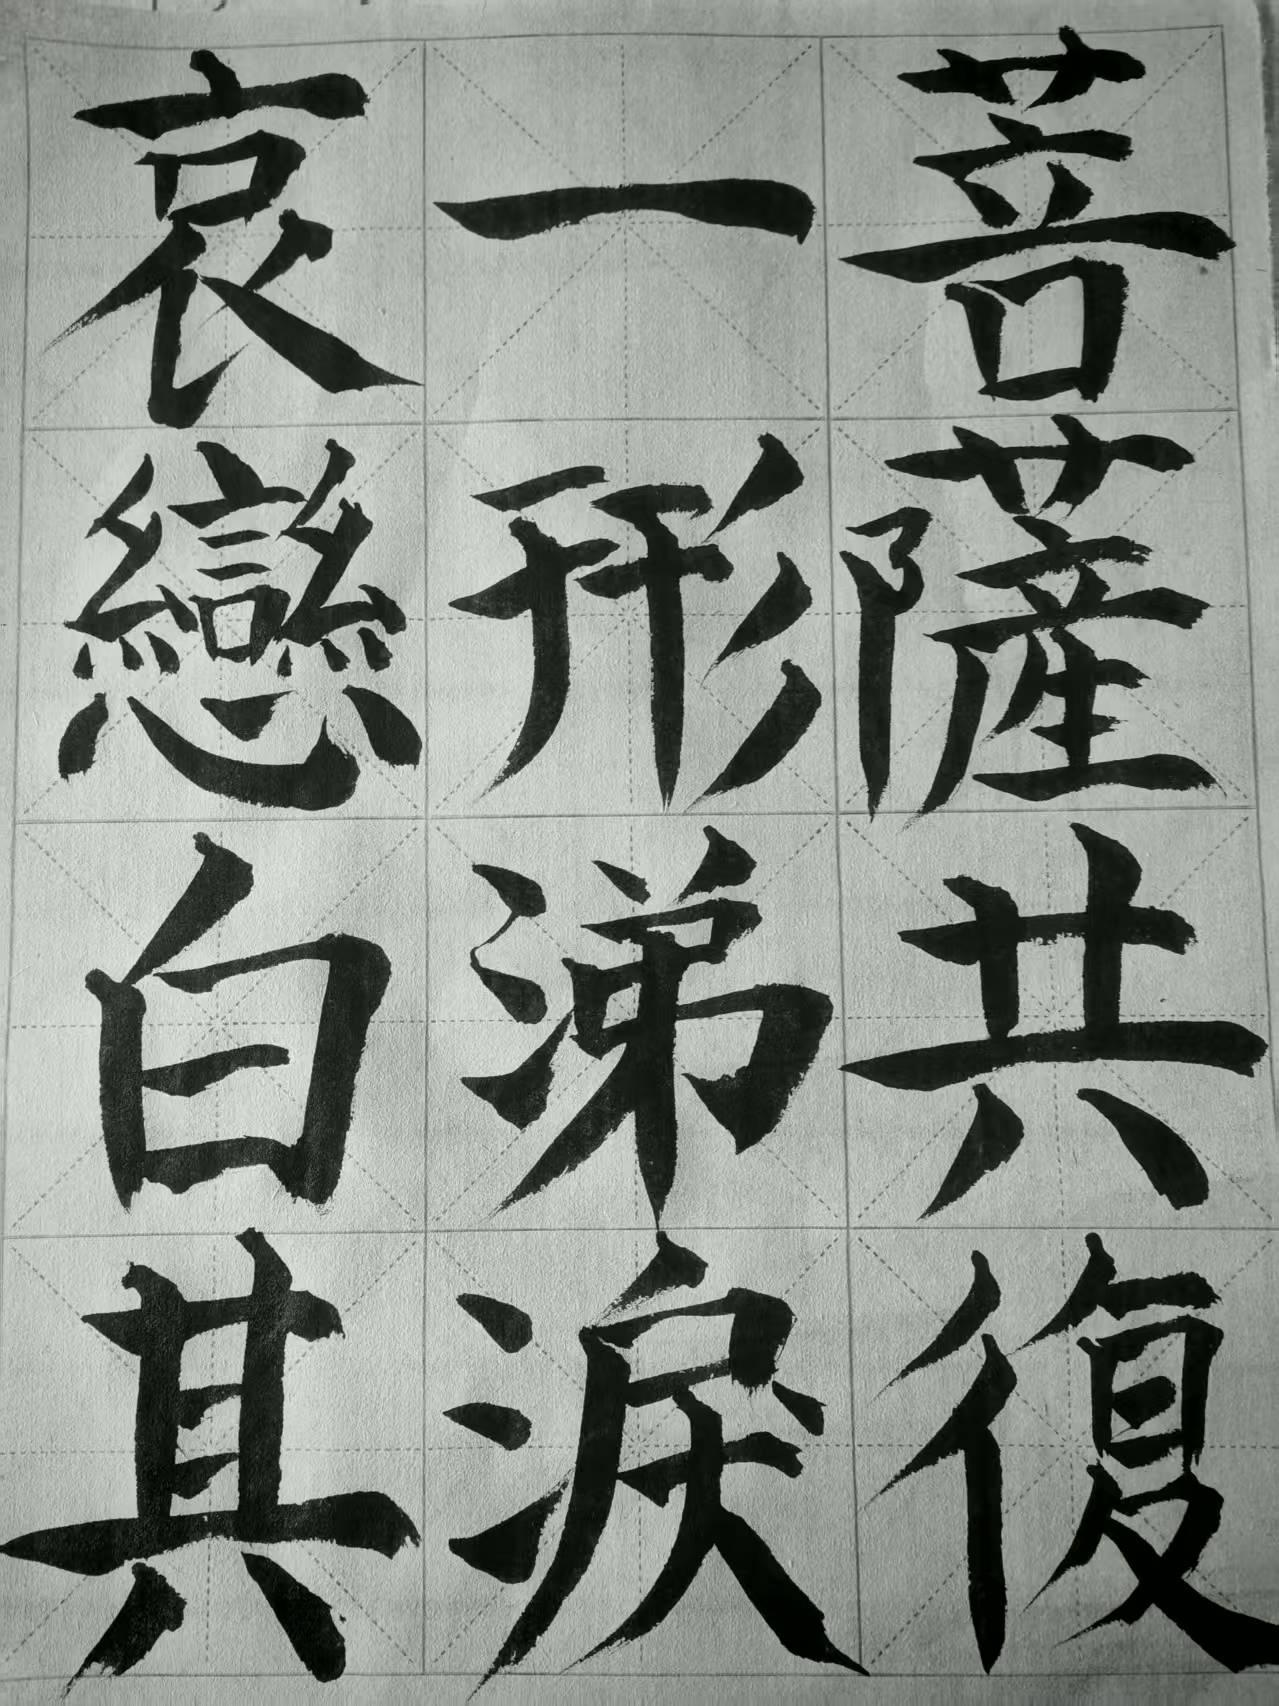 菩薩共復
一形涕淚
哀戀白其